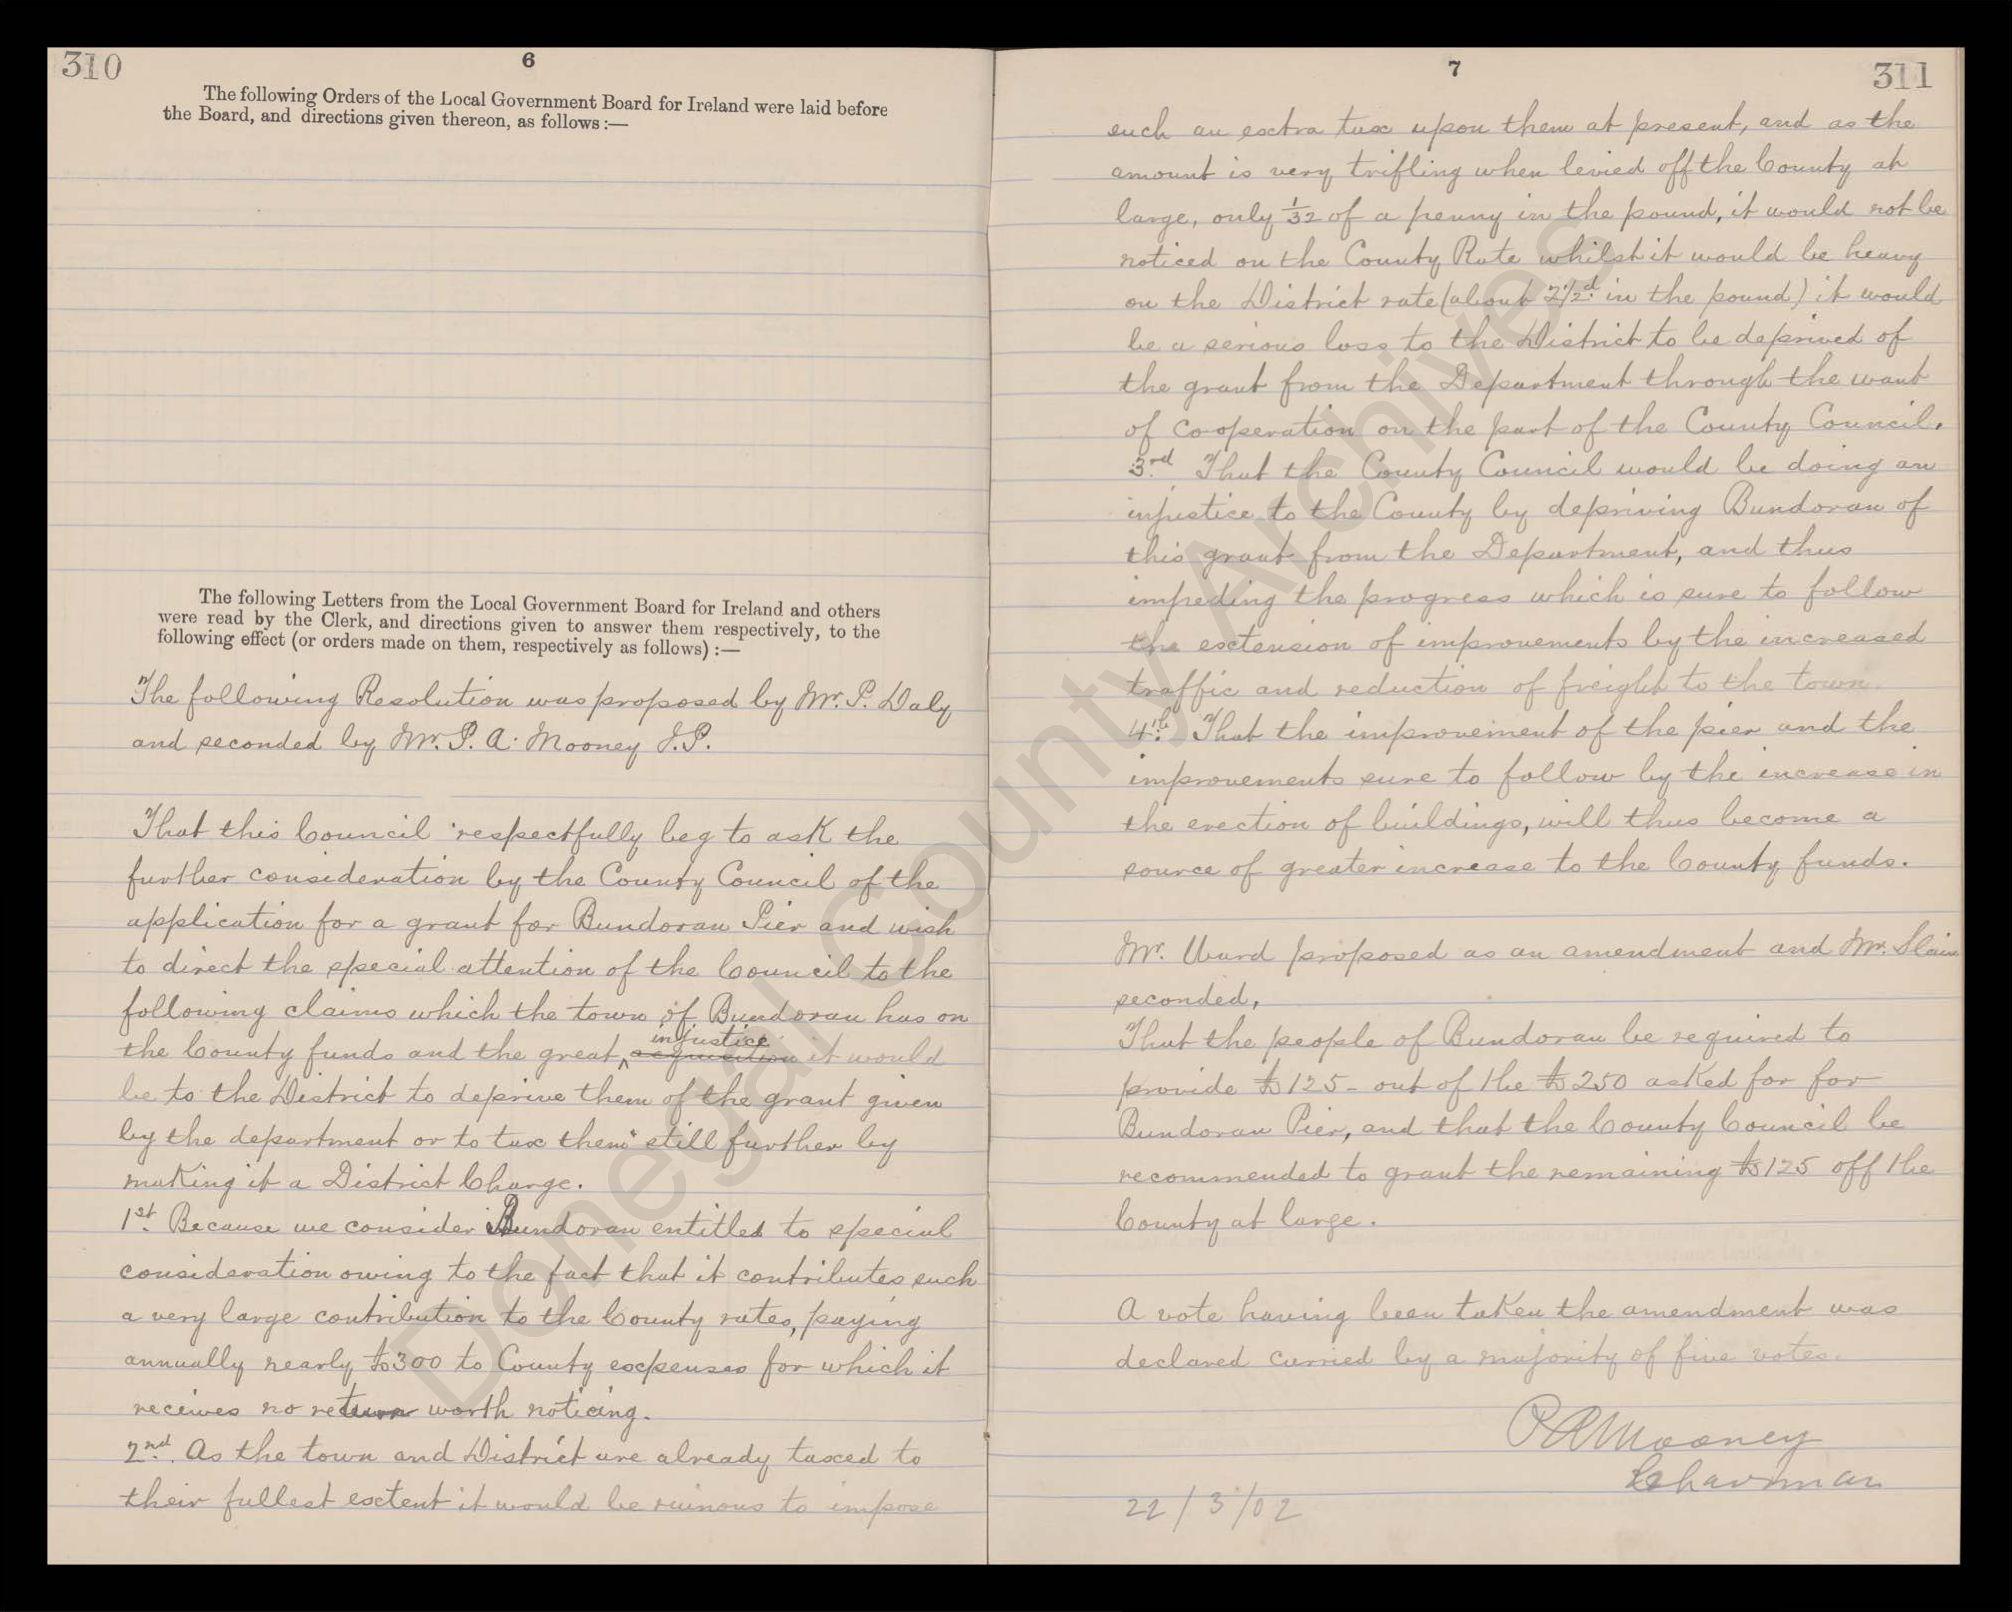 310
6
The following Orders of the Local Government Board for Ireland were laid before
the Board, and directions given thereon, as follows :—
The following Letters from the Local Government Board for Ireland and others
were read by the Clerk, and directions given to answer them respectively, to the
following effect (or orders made on them, respectively as follows) :—
The following Resolution was proposed by Mr. P. Daly
and seconded by Mr. P. A. Mooney J.P.
That this Council respectfully beg to ask the
further consideration by the County Council of the
application for a grant for Bundoran Pier and wish
to direct the special attention of the Council to the
following claims which the town of Bundoran has on
the County funds and the great injustice it would
be to the District to deprive them of the grant given
by the department or to tax them still further by
making it a District Charge.
1st. Because we consider Bundoran entitled to special
consideration owing to the fact that it contributes such
a very large contribution to the County rates, paying
annually nearly £300 to County expenses for which it
receives no return worth noticing.
2nd. As the town and District are already taxed to
their fullest extent it would be ruinous to impose
7
311
such an extra tax upon them at present, and as the
amount is very trifling when levied off the County at
large, only 1/32 of a penny in the pound, it would not be
noticed on the County Rate whilst it would be heavy
on the District rate (about 2½d in the pound) it would
be a serious loss to the District to be deprived of
the grant from the Department through the want
of co-operation on the part of the County Council.
3rd. That the County Council would be doing an
injustice to the County by depriving Bundoran of
this grant from the Department, and thus
impeding the progress which is sure to follow
the extension of improvements by the increased
traffic and reduction of freight to the town.
4th. That the improvement of the pier and the
improvements sure to follow by the increase in
the erection of buildings, will thus become a
source of greater increase to the County funds.
Mr. Ward proposed as an amendment and Mr. Slain
seconded,
That the people of Bundoran be required to
provide £125 - out of the £250 asked for for
Bundoran Pier, and that the County Council be
recommended to grant the remaining £125 off the
County at large.
A vote having been taken the amendment was
declared carried by a majority of five votes.
P A Mooney
Chairman
22/3/02
Donegal County Archives